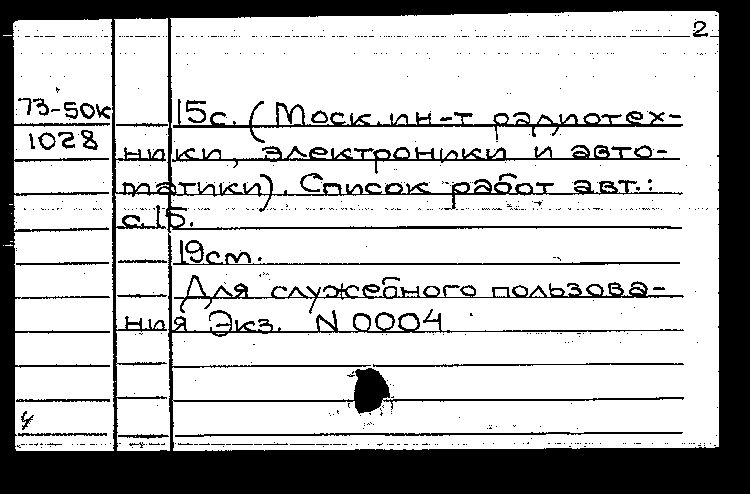 2
73-50к 15с. (Моск. ин-т радиотех-
1028 ники, электроники и авто-
матики). Список работ авт.:
с. 15.
19см.
Для служебного пользова-
ния Экз. N 0004.